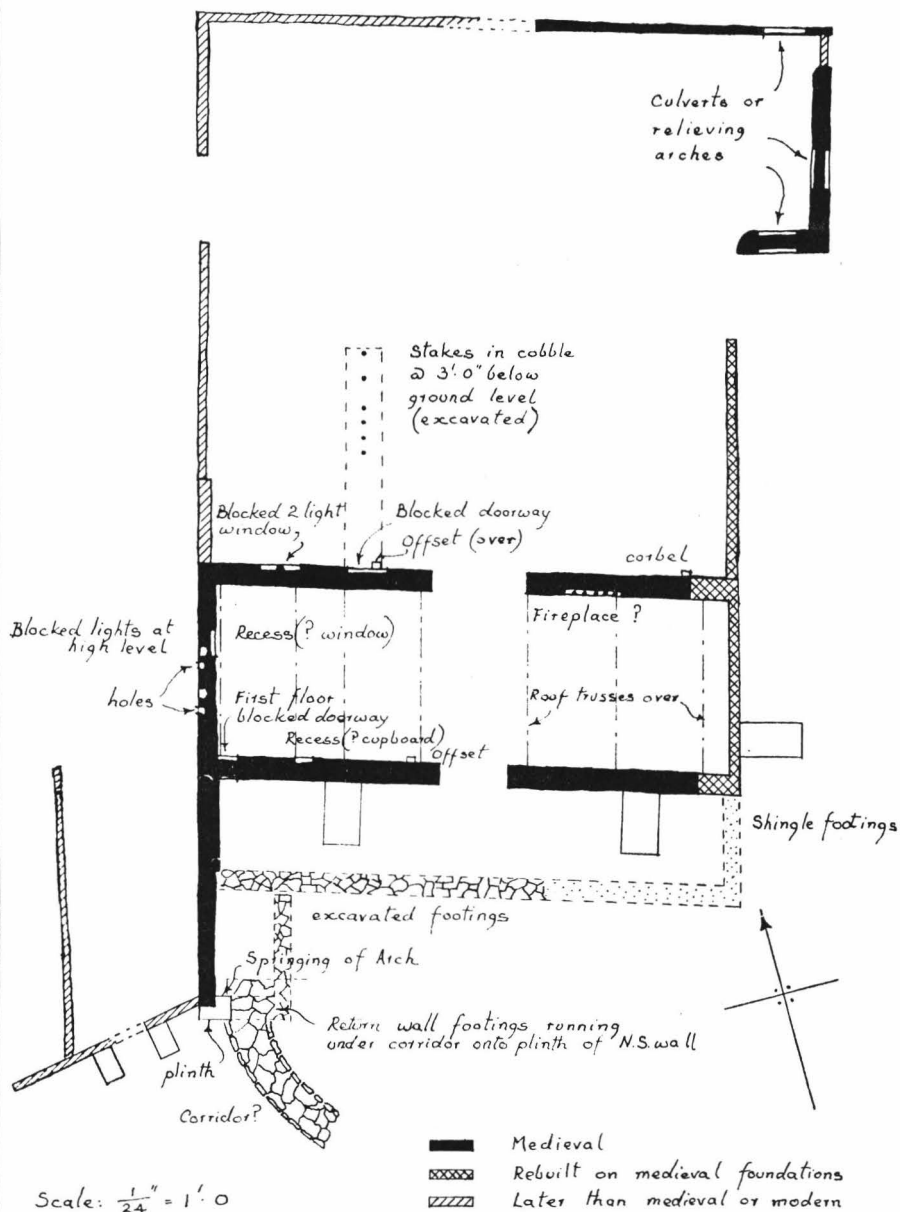 Culverts or
relieving
arches
Stakes in cobble
@ 3'.0" below
ground level
(excavated)
Blocked 2 light
window,
Blocked doorway
Offset (over)
corbel
Blocked lights at
high level
Recess (? window)
Fireplace ?
holes
First floor
blocked doorway
Roof trusses over
Recess (? cupboard)
Offset
Shingle footings
excavated footings
Springing of Arch
Return wall footings running
under corridor onto plinth of N.S. wall
plinth
Corridor?
Medieval
Rebuilt on medieval foundations
Scale: 1/24" = 1'.0
Later than medieval or modern